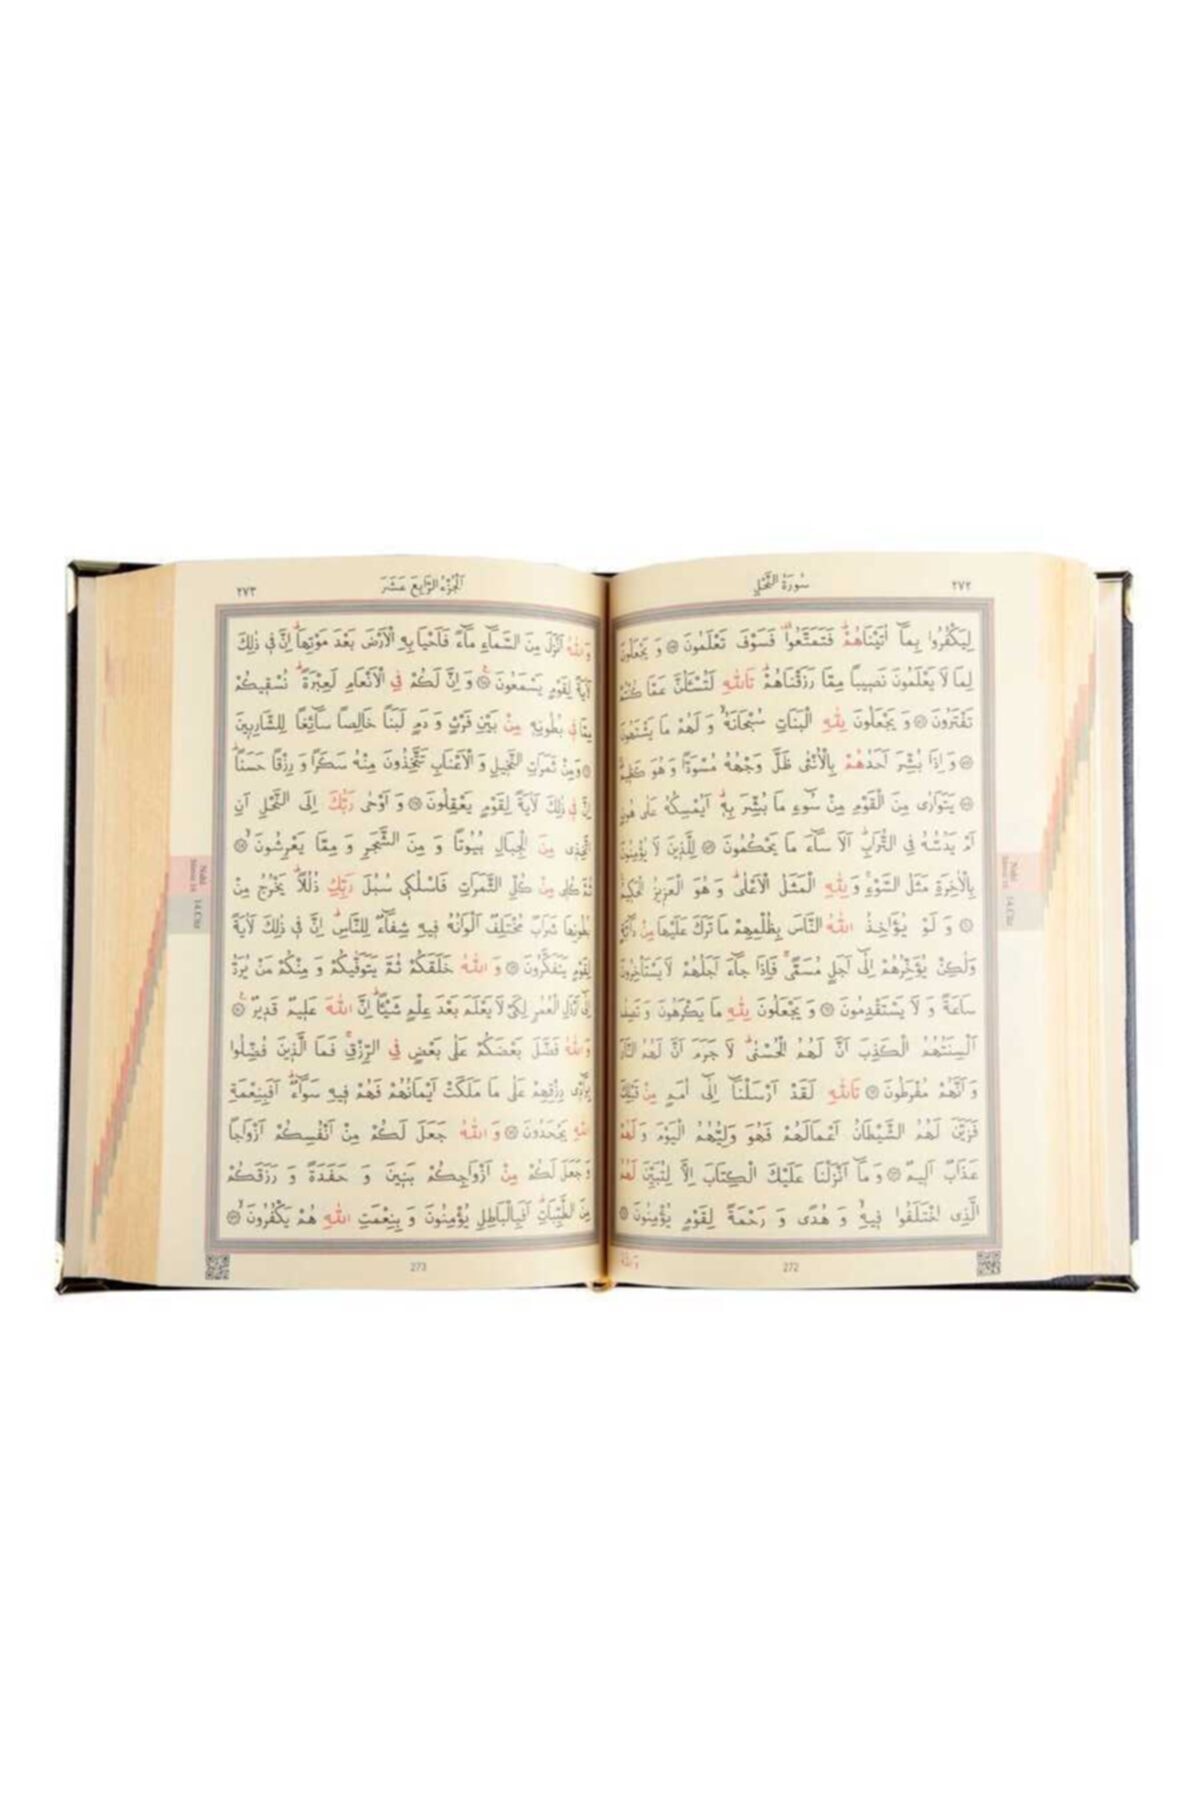 سُورَةُ النَّحْلِ
٢٧٢
لِيَكْفُرُوا بِمَٓا اٰتَيْنَاهُمْۜ فَتَمَتَّعُوا۠ فَسَوْفَ تَعْلَمُونَ ﴿٥٥﴾ وَيَجْعَلُونَ
لِمَا لَا يَعْلَمُونَ نَصِيبًا مِمَّا رَزَقْنَاهُمْۜ تَاللّٰهِ لَتُسْـَٔلُنَّ عَمَّا كُنْتُمْ
تَفْتَرُونَ ﴿٥٦﴾ وَيَجْعَلُونَ لِلّٰهِ الْبَنَاتِ سُبْحَانَهُۙ وَلَهُمْ مَا يَشْتَهُونَ
﴿٥٧﴾ وَاِذَا بُشِّرَ اَحَدُهُمْ بِالْاُنْثٰى ظَلَّ وَجْهُهُ مُسْوَدًّا وَهُوَ كَظِيمٌۚ
﴿٥٨﴾ يَتَوَارٰى مِنَ الْقَوْمِ مِنْ سُٓوءِ مَا بُشِّرَ بِهٖۜ اَيُمْسِكُهُ عَلٰى هُونٍ
اَمْ يَدُسُّهُ فِي التُّرَابِۜ اَلَا سَٓاءَ مَا يَحْكُمُونَ ﴿٥٩﴾ لِلَّذِينَ لَا يُؤْمِنُونَ
بِالْاٰخِرَةِ مَثَلُ السَّوْءِۚ وَلِلّٰهِ الْمَثَلُ الْاَعْلٰىۜ وَهُوَ الْعَزِيزُ الْحَكِيمُ
﴿٦٠﴾ وَلَوْ يُؤَاخِذُ اللّٰهُ النَّاسَ بِظُلْمِهِمْ مَا تَرَكَ عَلَيْهَا مِنْ دَٓابَّةٍ
وَلٰكِنْ يُؤَخِّرُهُمْ اِلٰٓى اَجَلٍ مُسَمًّىۚ فَاِذَا جَٓاءَ اَجَلُهُمْ لَا يَسْتَأْخِرُونَ
سَاعَةً وَلَا يَسْتَقْدِمُونَ ﴿٦١﴾ وَيَجْعَلُونَ لِلّٰهِ مَا يَكْرَهُونَ وَتَصِفُ
اَلْسِنَتُهُمُ الْكَذِبَ اَنَّ لَهُمُ الْحُسْنٰىۜ لَا جَرَمَ اَنَّ لَهُمُ النَّارَ
وَاَنَّهُمْ مُفْرَطُونَ ﴿٦٢﴾ تَاللّٰهِ لَقَدْ اَرْسَلْنَٓا اِلٰٓى اُمَمٍ مِنْ قَبْلِكَ
فَزَيَّنَ لَهُمُ الشَّيْطَانُ اَعْمَالَهُمْ فَهُوَ وَلِيُّهُمُ الْيَوْمَ وَلَهُمْ
عَذَابٌ اَلِيمٌ ﴿٦٣﴾ وَمَٓا اَنْزَلْنَا عَلَيْكَ الْكِتَابَ اِلَّا لِتُبَيِّنَ لَهُمُ
الَّذِي اخْتَلَفُوا فِيهِۙ وَهُدًى وَرَحْمَةً لِقَوْمٍ يُؤْمِنُونَ ﴿٦٤﴾
وَاللّٰهُ
272
Nahl
Sûresi 16
14.Cüz
اَلْجُزْءُ الرَّابِعَ عَشَرَ
٢٧٣
وَاللّٰهُ اَنْزَلَ مِنَ السَّمَٓاءِ مَٓاءً فَاَحْيَا بِهِ الْاَرْضَ بَعْدَ مَوْتِهَاۜ اِنَّ فِي ذٰلِكَ
لَاٰيَةً لِقَوْمٍ يَسْمَعُونَ۟ ﴿٦٥﴾ وَاِنَّ لَكُمْ فِي الْاَنْعَامِ لَعِبْرَةًۜ نُسْقِيكُمْ
مِمَّا فِي بُطُونِهٖ مِنْ بَيْنِ فَرْثٍ وَدَمٍ لَبَنًا خَالِصًا سَٓائِغًا لِلشَّارِبِينَ
﴿٦٦﴾ وَمِنْ ثَمَرَاتِ النَّخِيلِ وَالْاَعْنَابِ تَتَّخِذُونَ مِنْهُ سَكَرًا وَرِزْقًا حَسَنًاۜ
اِنَّ فِي ذٰلِكَ لَاٰيَةً لِقَوْمٍ يَعْقِلُونَ ﴿٦٧﴾ وَاَوْحٰى رَبُّكَ اِلَى النَّحْلِ اَنِ
اتَّخِذِي مِنَ الْجِبَالِ بُيُوتًا وَمِنَ الشَّجَرِ وَمِمَّا يَعْرِشُونَۙ ﴿٦٨﴾
ثُمَّ كُلِي مِنْ كُلِّ الثَّمَرَاتِ فَاسْلُكِي سُبُلَ رَبِّكِ ذُلُلًاۜ يَخْرُجُ مِنْ
بُطُونِهَا شَرَابٌ مُخْتَلِفٌ اَلْوَانُهُ فِيهِ شِفَٓاءٌ لِلنَّاسِۜ اِنَّ فِي ذٰلِكَ لَاٰيَةً
لِقَوْمٍ يَتَفَكَّرُونَ ﴿٦٩﴾ وَاللّٰهُ خَلَقَكُمْ ثُمَّ يَتَوَفّٰيكُمْ وَمِنْكُمْ مَنْ يُرَدُّ
اِلٰٓى اَرْذَلِ الْعُمُرِ لِكَيْ لَا يَعْلَمَ بَعْدَ عِلْمٍ شَيْـًٔاۜ اِنَّ اللّٰهَ عَلِيمٌ قَدِيرٌ۟ ﴿٧٠﴾
وَاللّٰهُ فَضَّلَ بَعْضَكُمْ عَلٰى بَعْضٍ فِي الرِّزْقِۚ فَمَا الَّذِينَ فُضِّلُوا
بِرَٓادِّي رِزْقِهِمْ عَلٰى مَا مَلَكَتْ اَيْمَانُهُمْ فَهُمْ فِيهِ سَوَٓاءٌۜ اَفَبِنِعْمَةِ
اللّٰهِ يَجْحَدُونَ ﴿٧١﴾ وَاللّٰهُ جَعَلَ لَكُمْ مِنْ اَنْفُسِكُمْ اَزْوَاجًا
وَجَعَلَ لَكُمْ مِنْ اَزْوَاجِكُمْ بَنِينَ وَحَفَدَةً وَرَزَقَكُمْ
مِنَ الطَّيِّبَاتِۜ اَفَبِالْبَاطِلِ يُؤْمِنُونَ وَبِنِعْمَتِ اللّٰهِ هُمْ يَكْفُرُونَۙ ﴿٧٢﴾
273
Nahl
Sûresi 16
14.Cüz